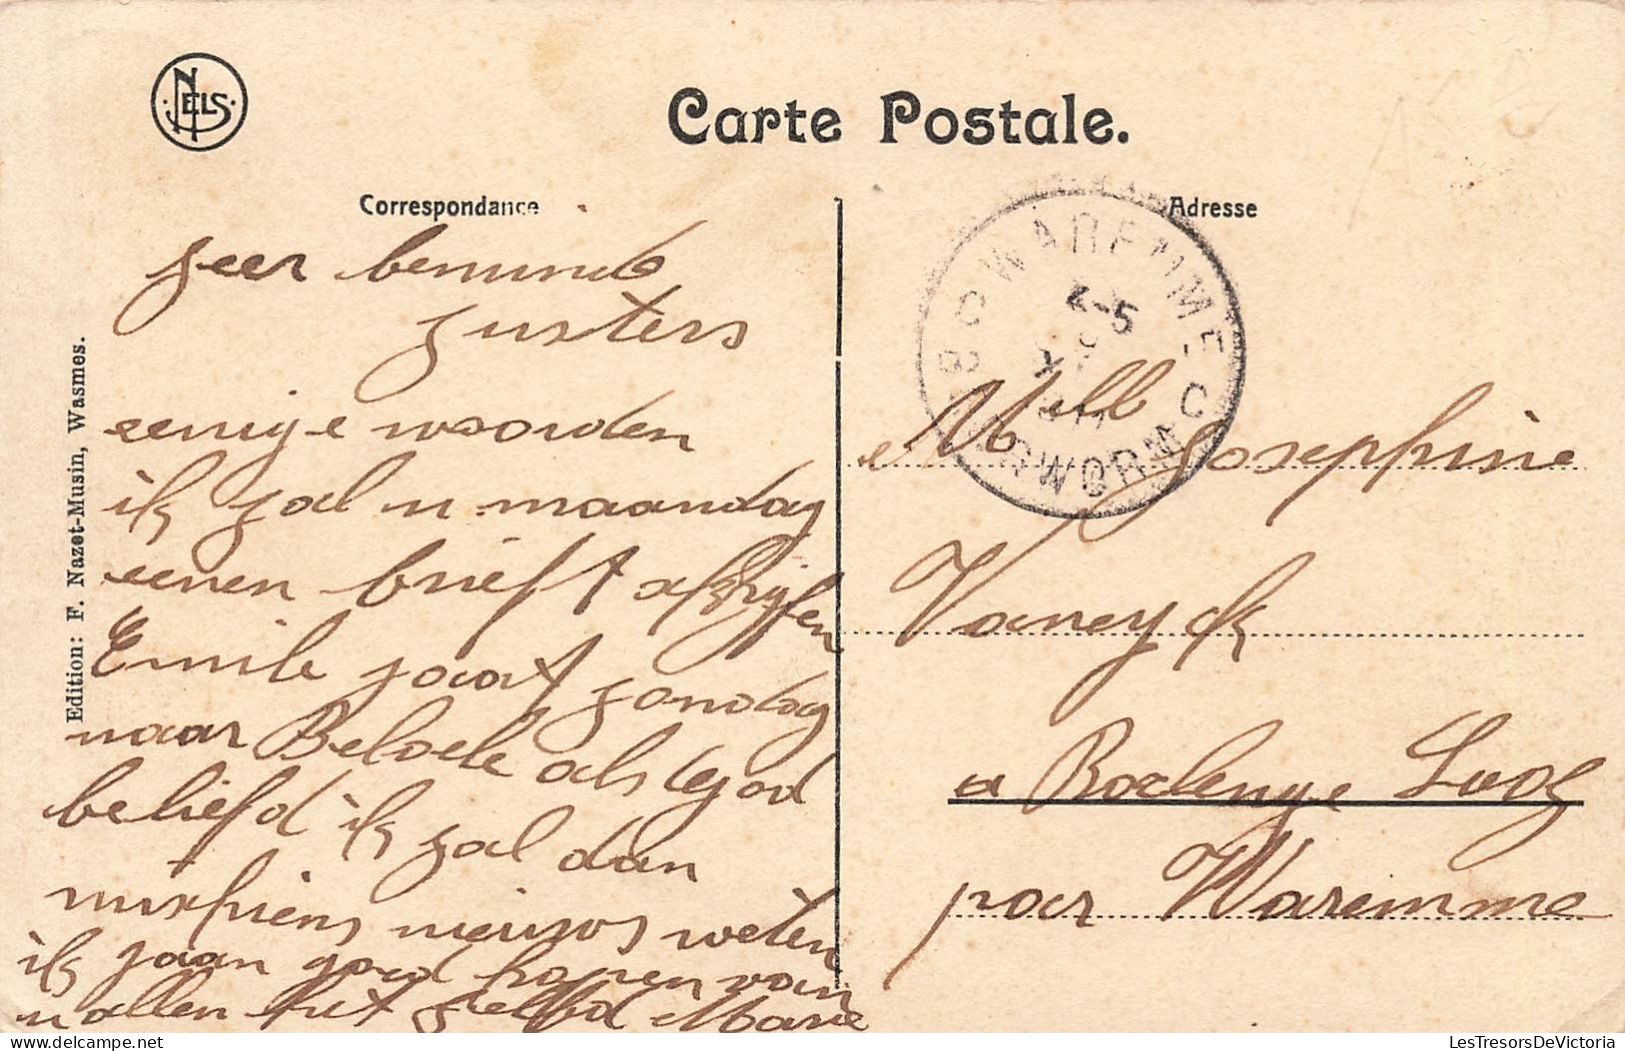 NELS
Carte Postale.
Correspondance
Adresse
Edition: F. Nazet-Musin, Wasmes.
zeer beminde
zusters
eenige woorden
ik zal u maandag
eenen brieft
Emile gaat zondag
naar Beloele als God
beliefd ik zal dan
mischiens nieuws weten
ik gaan goed hopen van
u allen het zelfd Marie
BORGWORM-C
WAREMME-C
4-5
Mell Josephine
Vaneyck
a Roclenge Looz
par Waremme
LesTresorsDeVictoria